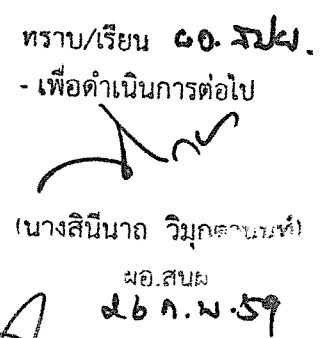 ทราบ/เรียน ผอ.
- เพื่อดำเนินการต่อไป
(นางสินีนาถ วิมุกตานนท์)
ผอ.สนผ
26 ก.พ. 59